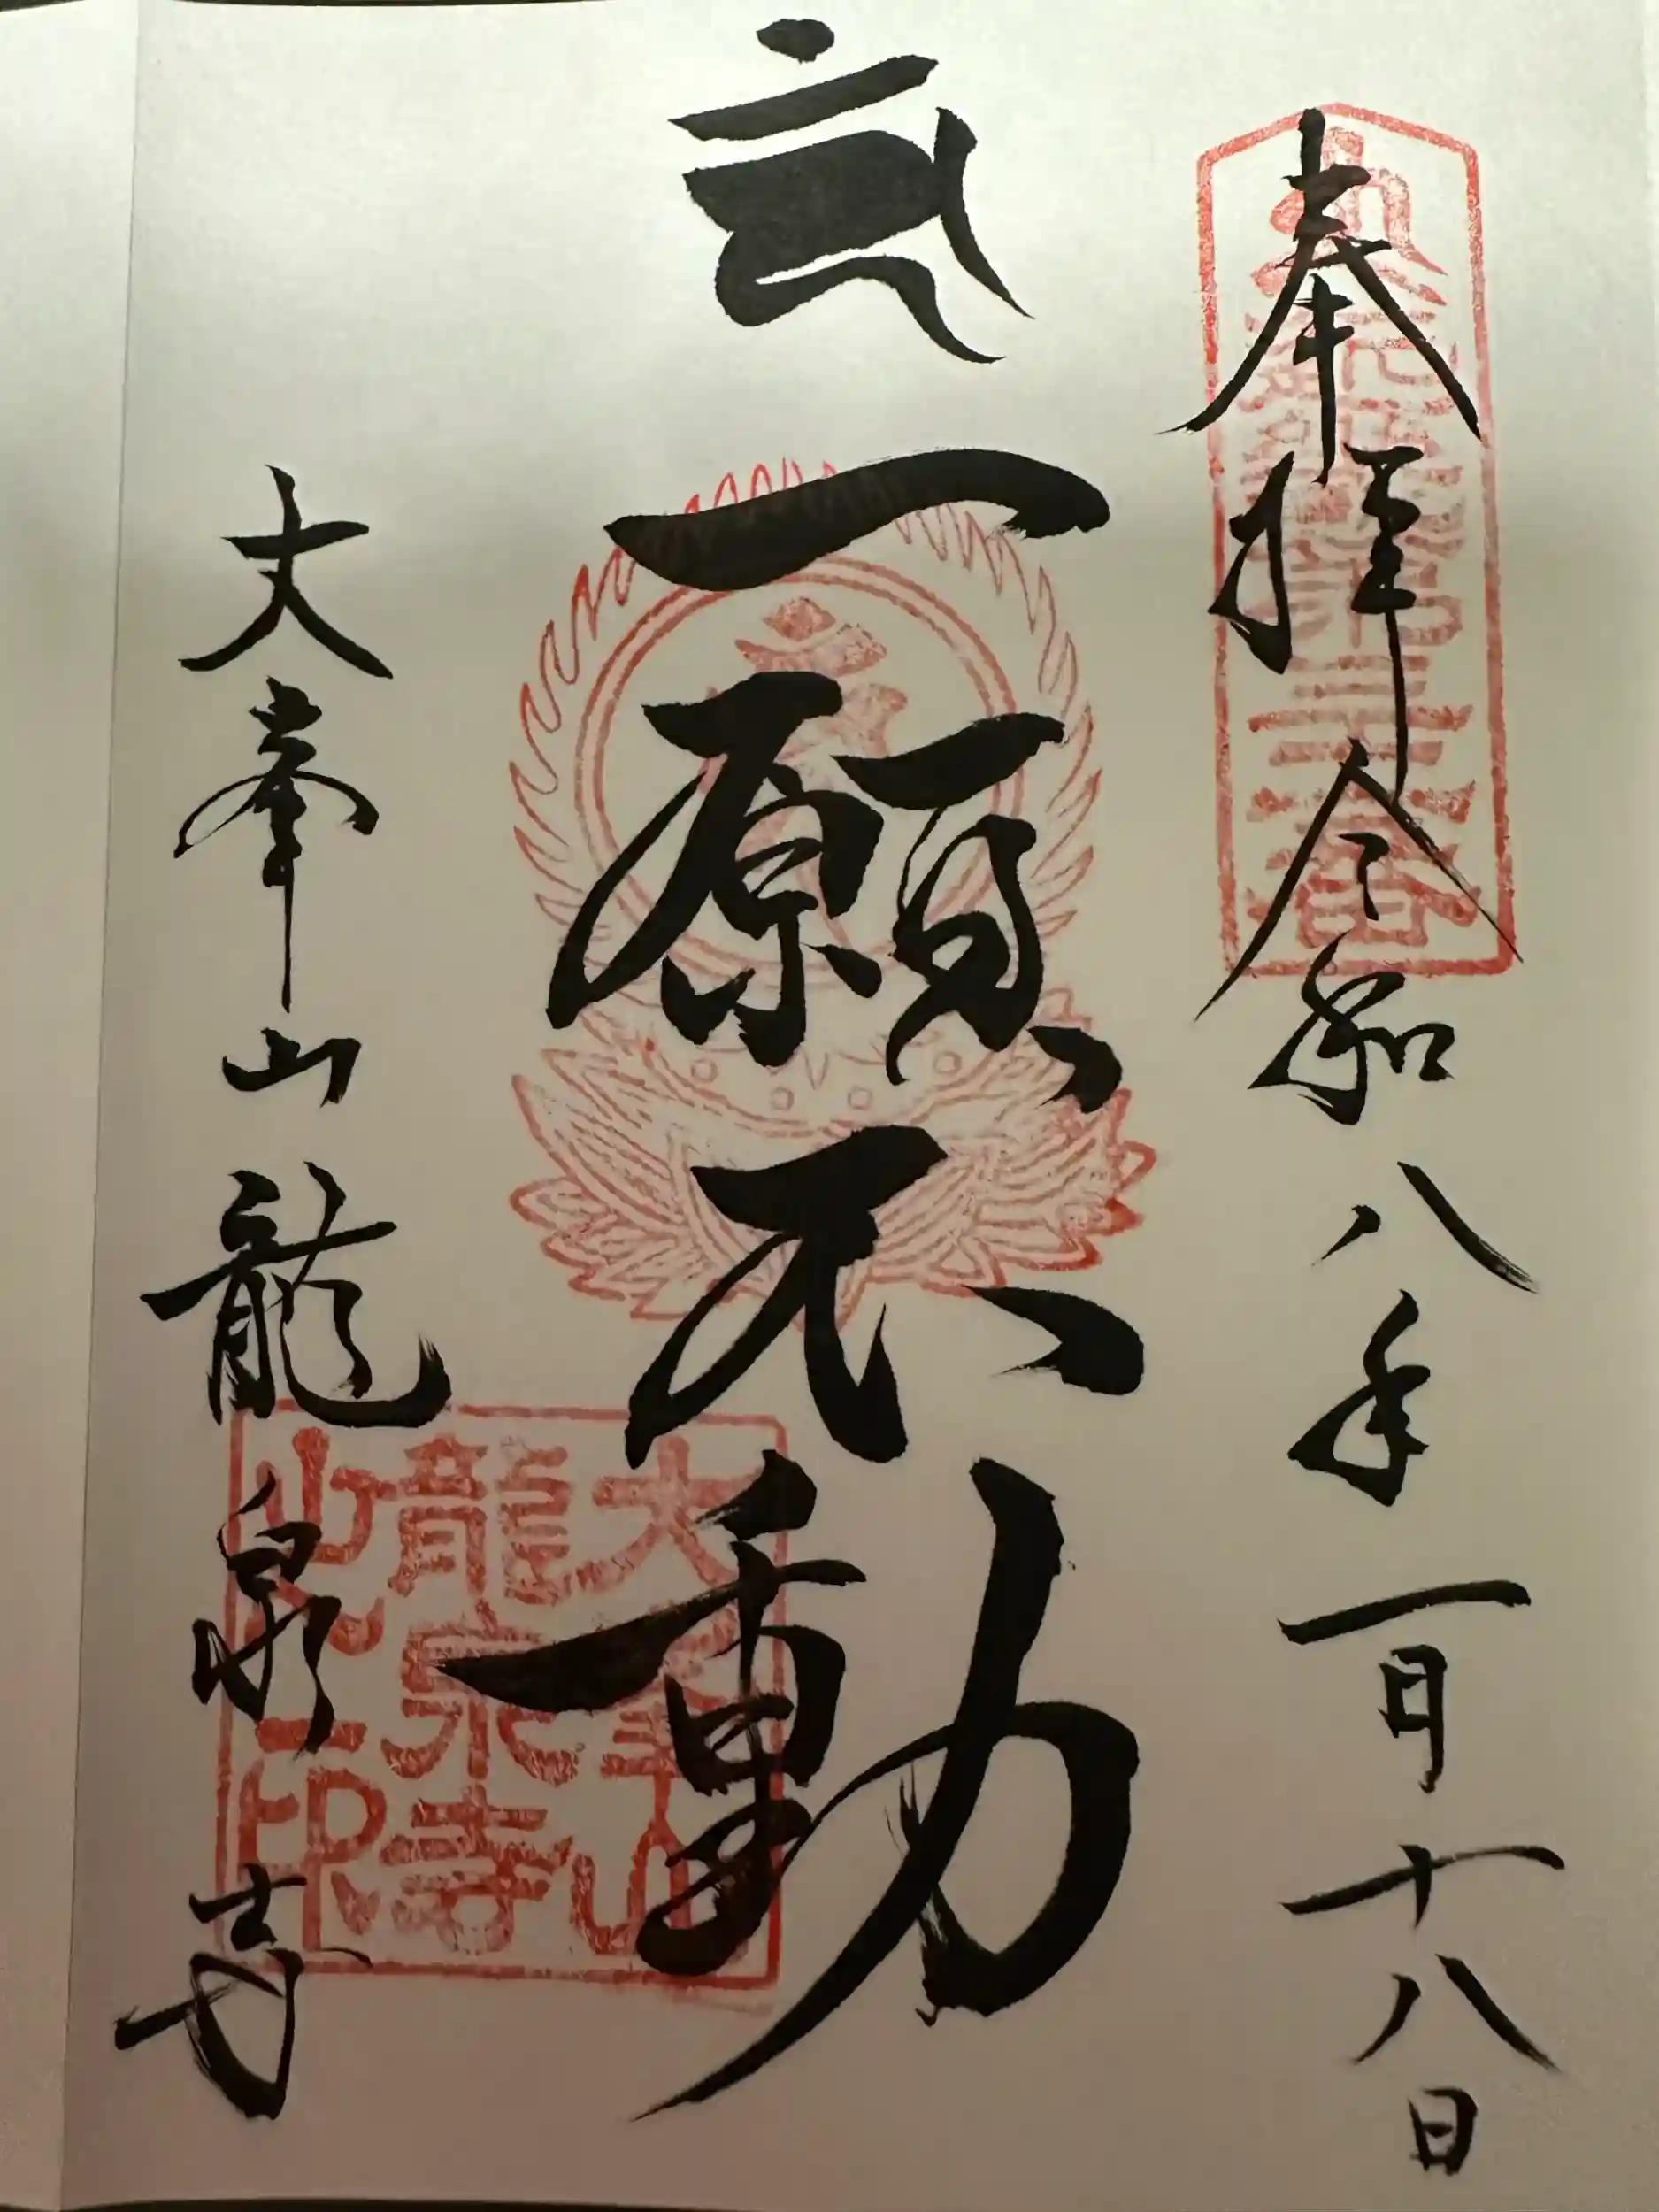 奉拝 令和八年一月十八日
一願不動
大峯山 龍泉寺
大峯山
龍泉寺
之印